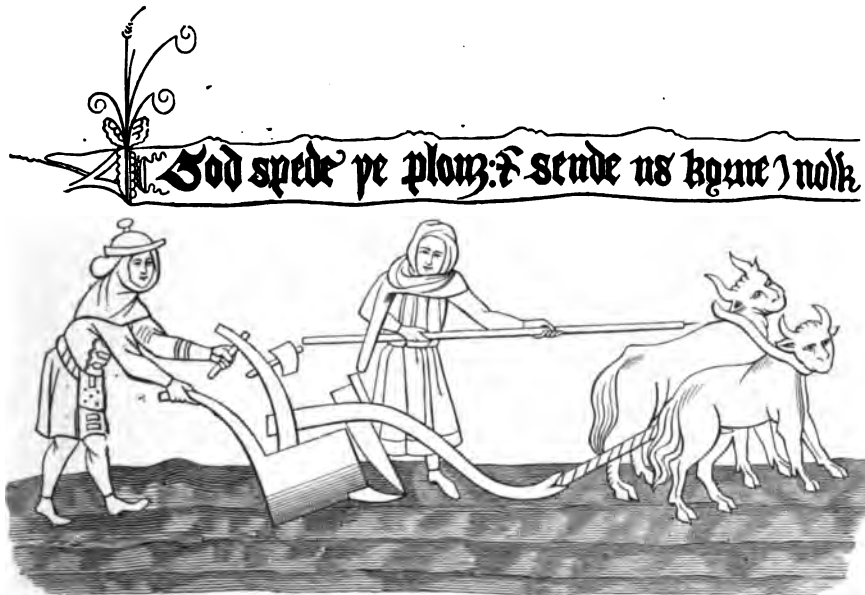 God spede ye plouȝ: ⁊ sende us korne inolk